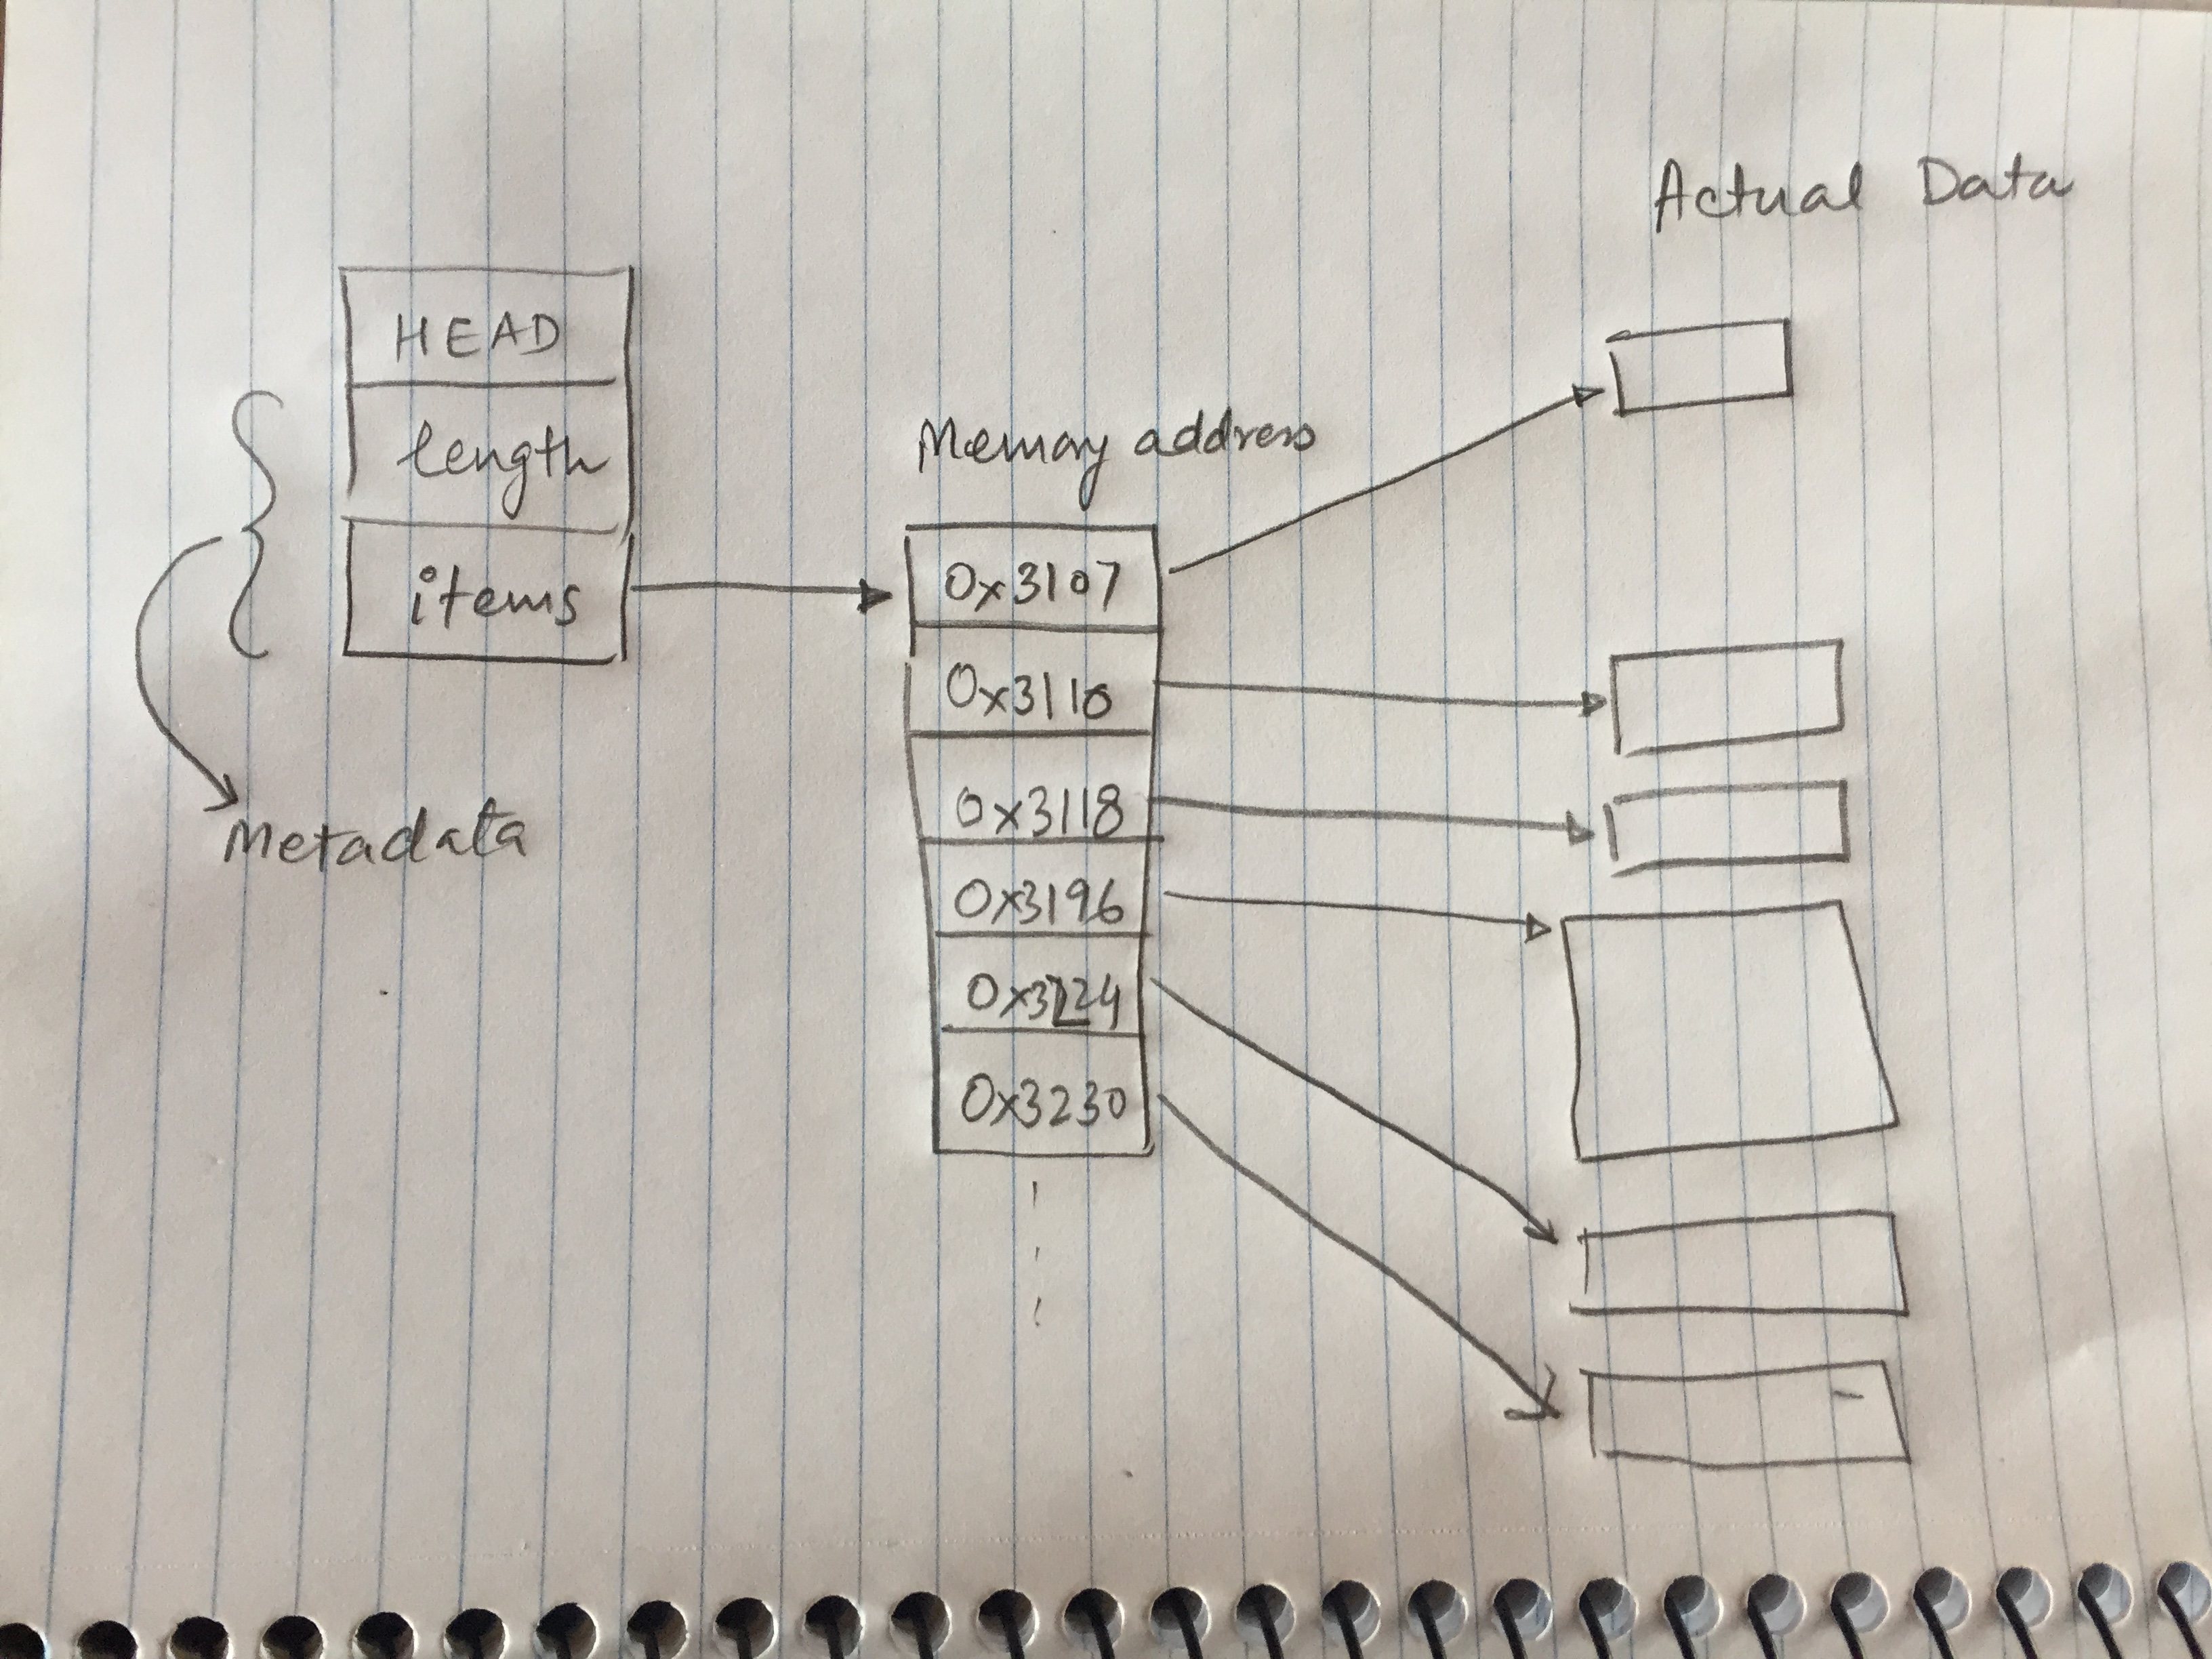 HEAD
length
items
Metadata
Memory address
0x3107
0x3110
0x3118
0x3196
0x3230
Actual Data